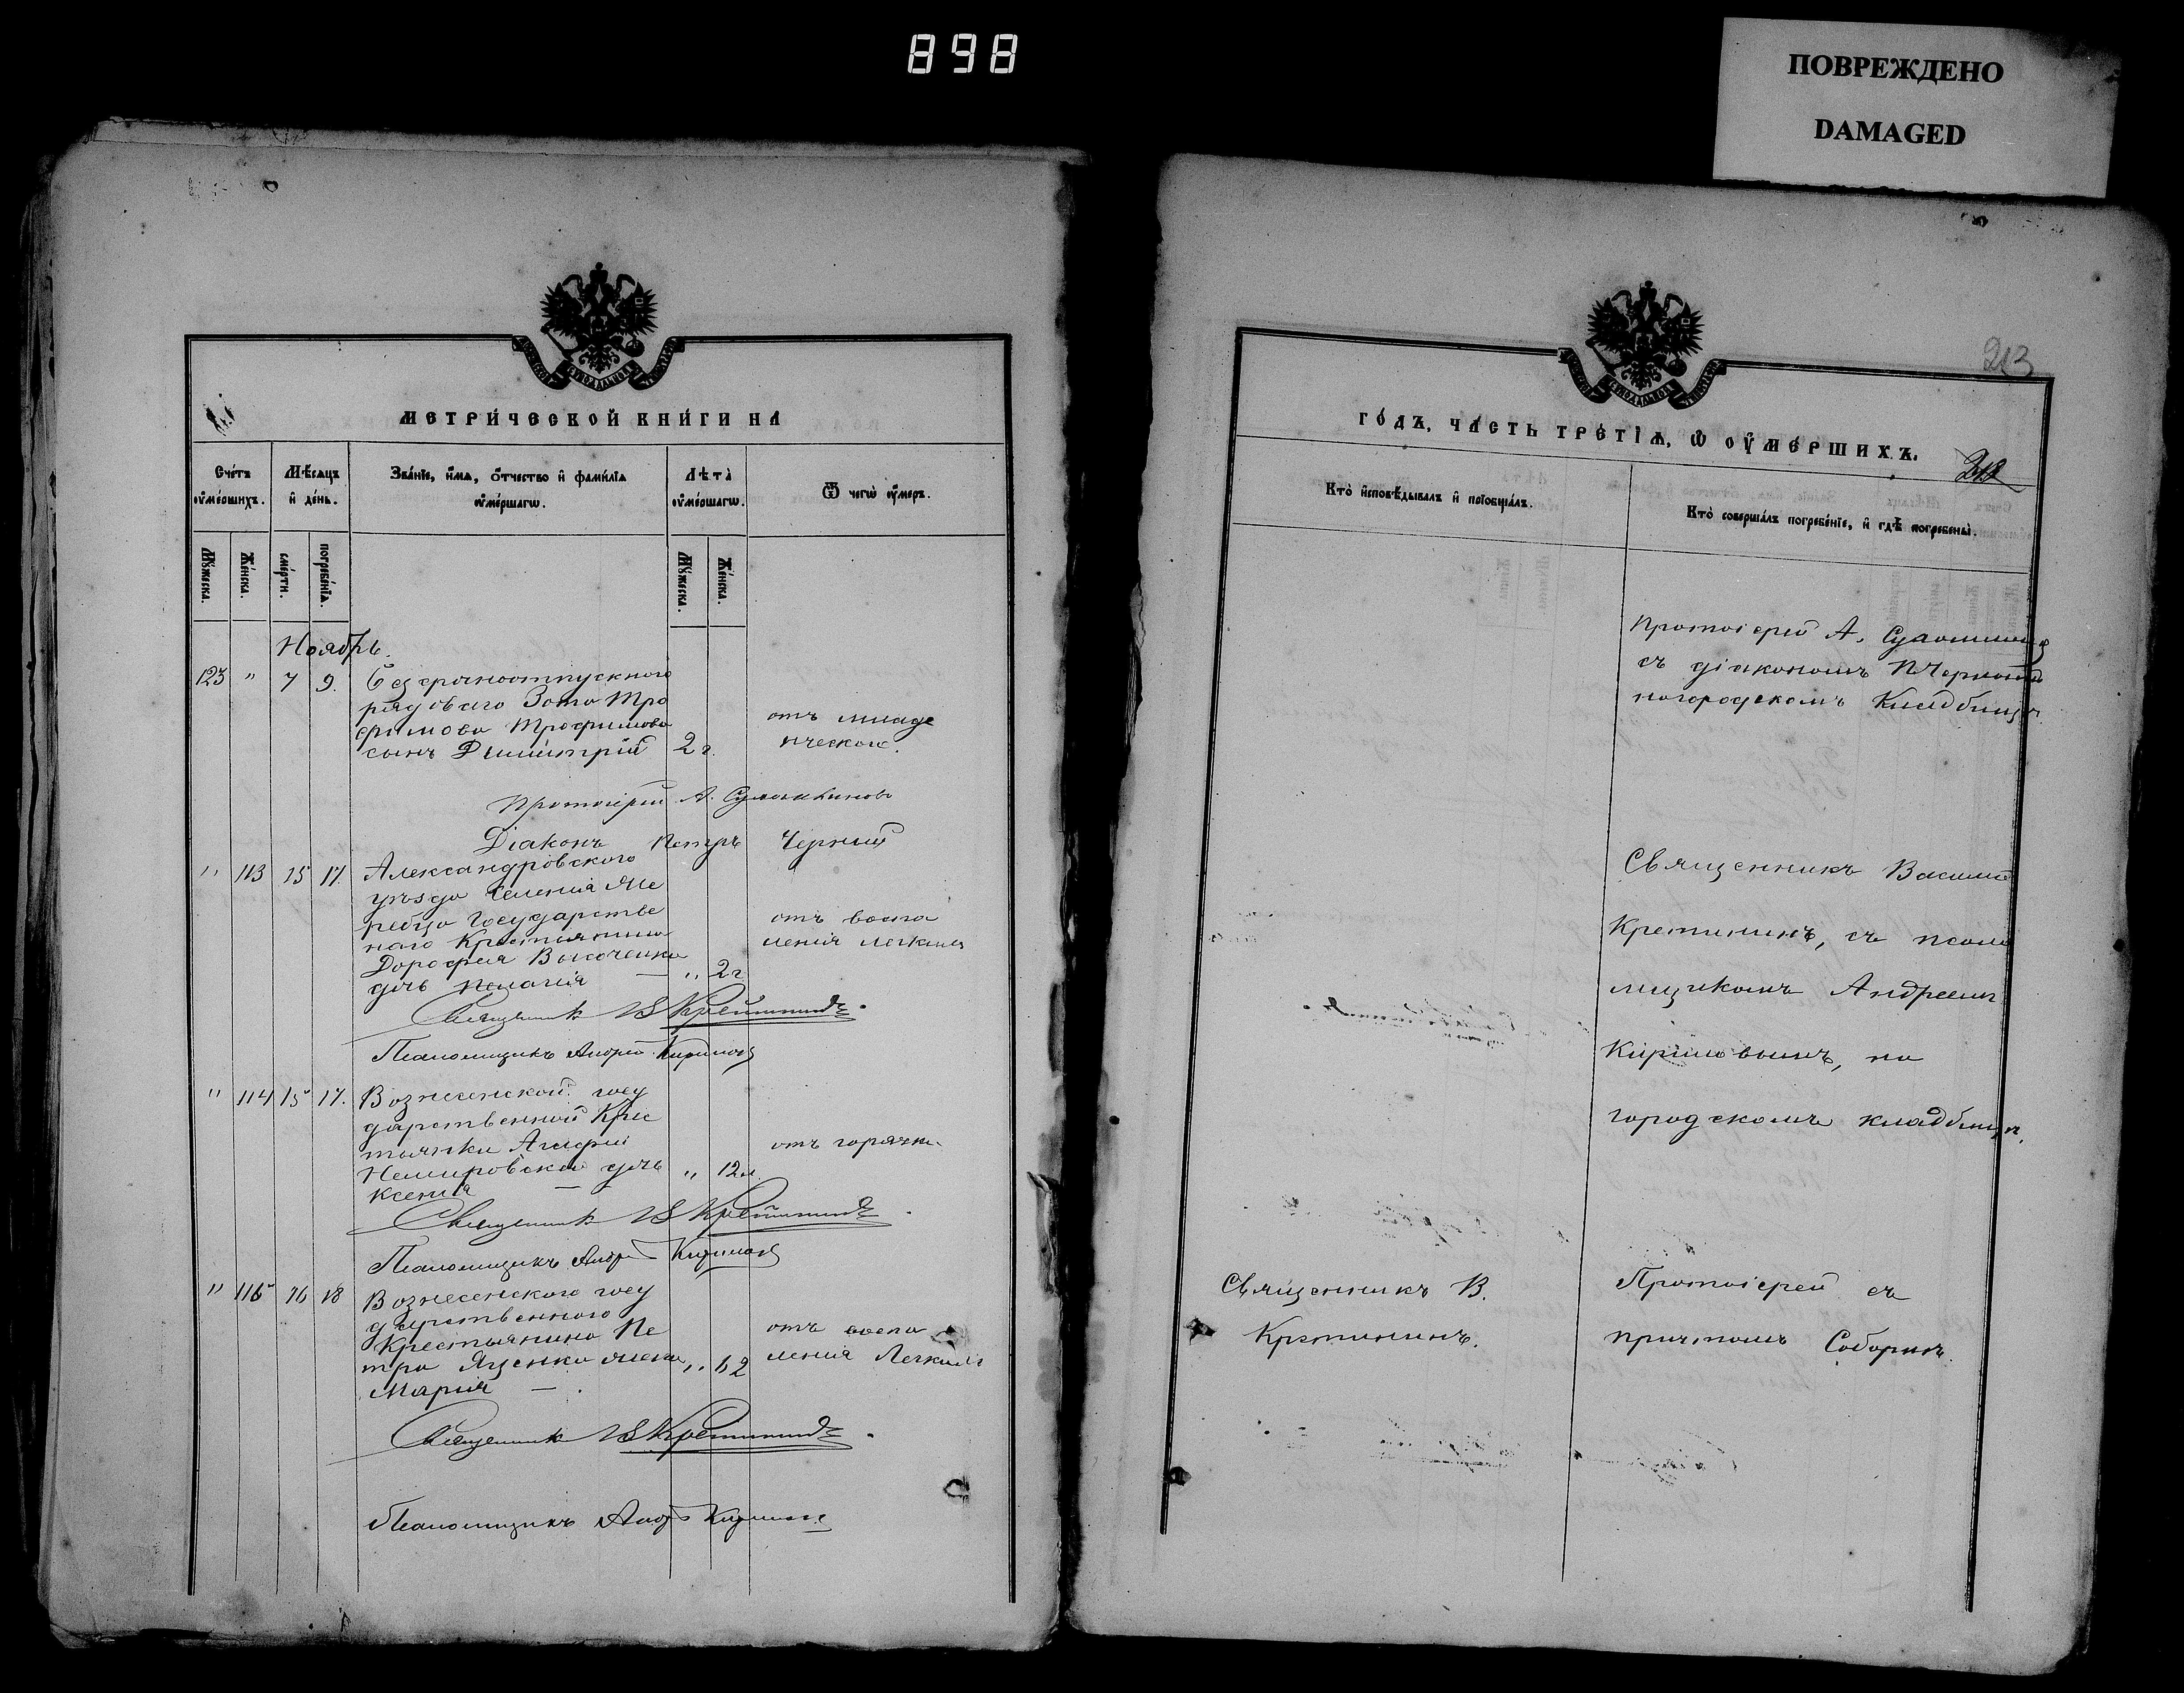 898
ПОВРЕЖДЕНО
DAMAGED
МЕТРИ́ЧЕСКОЙ КНИ́ГИ НА
Сче́тъ оу҆ме́ршихъ.
Мѣ́сяцъ и҆ де́нь.
Зва́нїе, и҆́мя, ѻ҆́тчество и҆ фами́лїя оу҆ме́ршагѡ.
Лѣта̀ оу҆ме́ршагѡ.
Ѿ чегѡ̀ оу҆́меръ.
Му́жеска.
Же́нска.
сме́рти.
погребе́нїя.
Му́жеска.
Же́нска.
Ноябрь.
123 " 7 9. Безсрочноотпускного
рядоваго Зота Тро
фимова Трофимова
сынъ Димитрій 2 г.
отъ младе
нческой.
Протоіерей А.
Діаконъ Петръ Черный
" 113 15 17. Александровского
уѣзда Селенія Же
ребца Государстве
наго Крестьянина
Дорофея Высоченка
дочь Пелагія — " 2 г
отъ воспа
ленія легкихъ
Священникъ В Кретининъ.
Псаломщикъ Андрей Кириловъ
" 114 15 17. Вознесенской госу
дарственной Крес
тьянки Агафіи
Немировской дочь " 12 л.
Ксенія —
отъ горячки
Священникъ В Кретининъ.
Псаломщикъ Андр Кириловъ
" 115 16 18 Вознесенского госу
дарственного
Крестьянина Пе
тра Яценка жена " 62
Марія — .
отъ воспа
ленія Легкихъ
Священникъ В Кретининъ.
Псаломщикъ Андр Кирилов
213
ГО́ДЪ, ЧА́СТЬ ТРЕ́ТІѦ, Ѡ҆ ОУ҆МЕ́РШИХЪ.
212
Кто̀ и҆сповѣ́дывалъ и҆ прїобща́лъ.
Кто̀ соверша́лъ погребе́нїе, и҆ гдѣ̀ погребены̀.
Протоіерей А.
съ діакономъ П. Чернымъ
на городскомъ Кладбищѣ.
Священникъ Василій
Кретининъ, съ псало
мщикомъ Андреемъ
Кириловымъ, на
городскомъ кладбищѣ.
Священникъ В.
Кретининъ.
Протоіерей съ
причтомъ Соборнѣ.